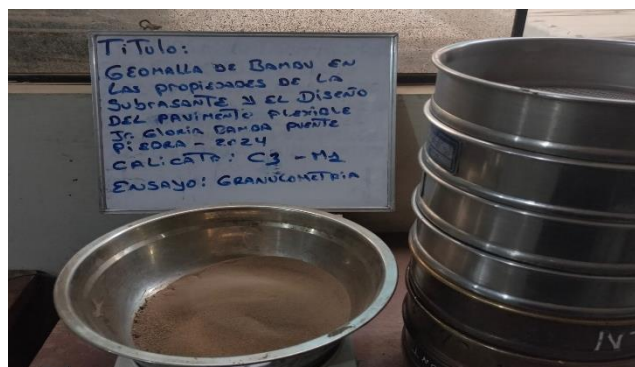 TiTulo:
GEOMALLA DE BAMBU EN
LAS PROPIEDADES DE LA
SUBRASANTE Y EL DISEÑO
DEL PAVIMENTO FLEXIBLE
Jr. GLORIA BAMBA PUENTE
PIEDRA - 2024
CALICATA: C3 - M1
ENSAYO: GRANULOMETRIA